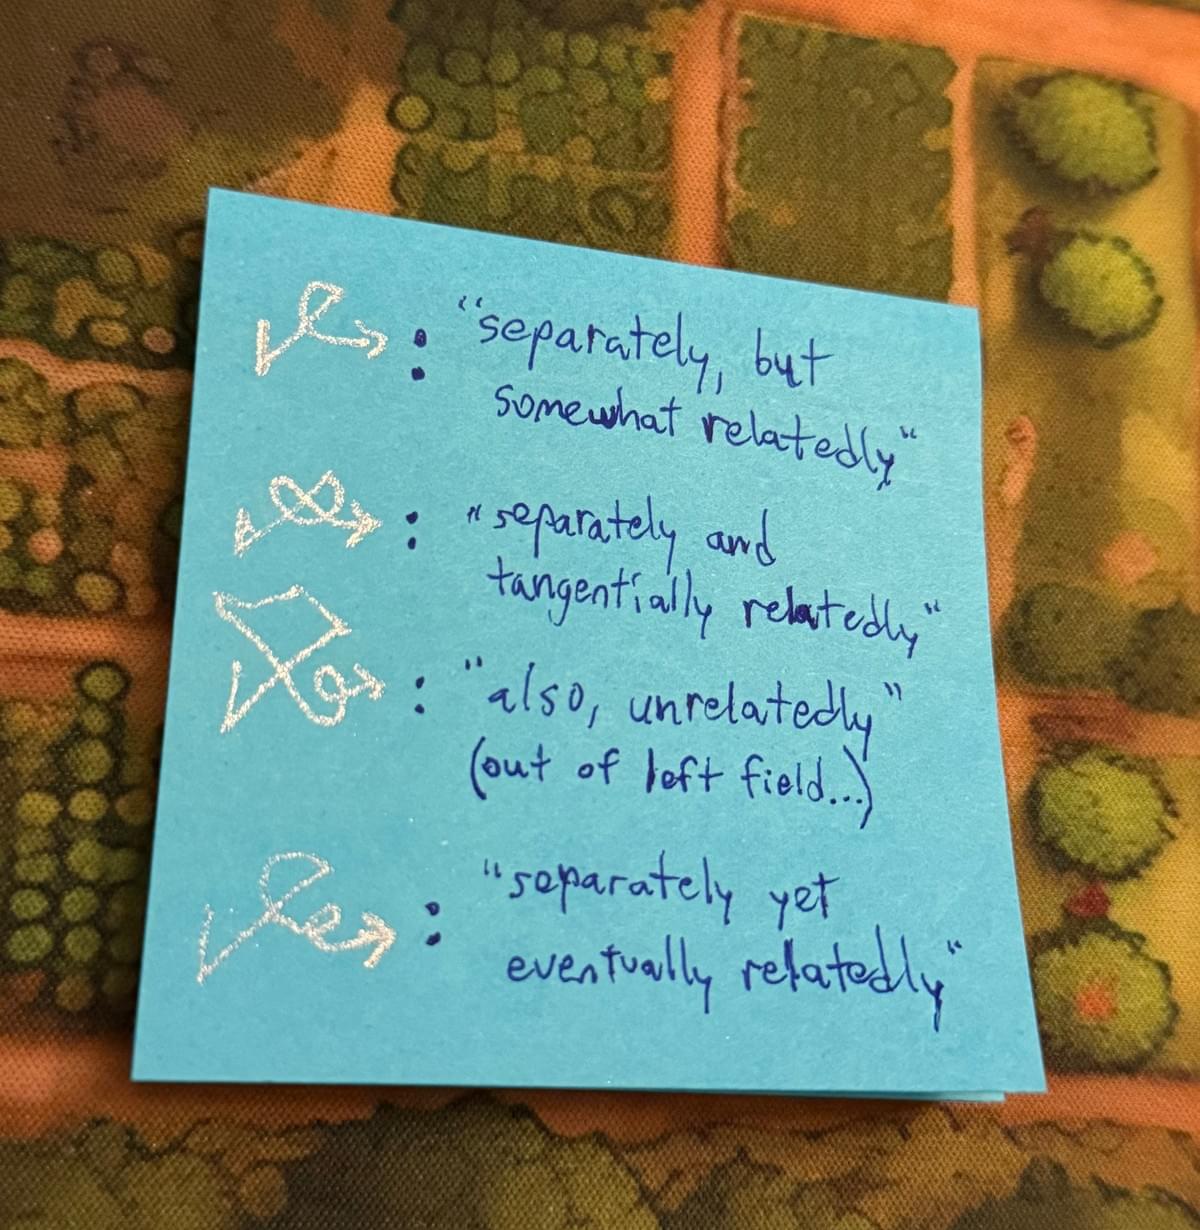 : "separately, but
somewhat relatedly"
: "separately and
tangentially relatedly"
: "also, unrelatedly"
(out of left field...)
: "separately yet
eventually relatedly"